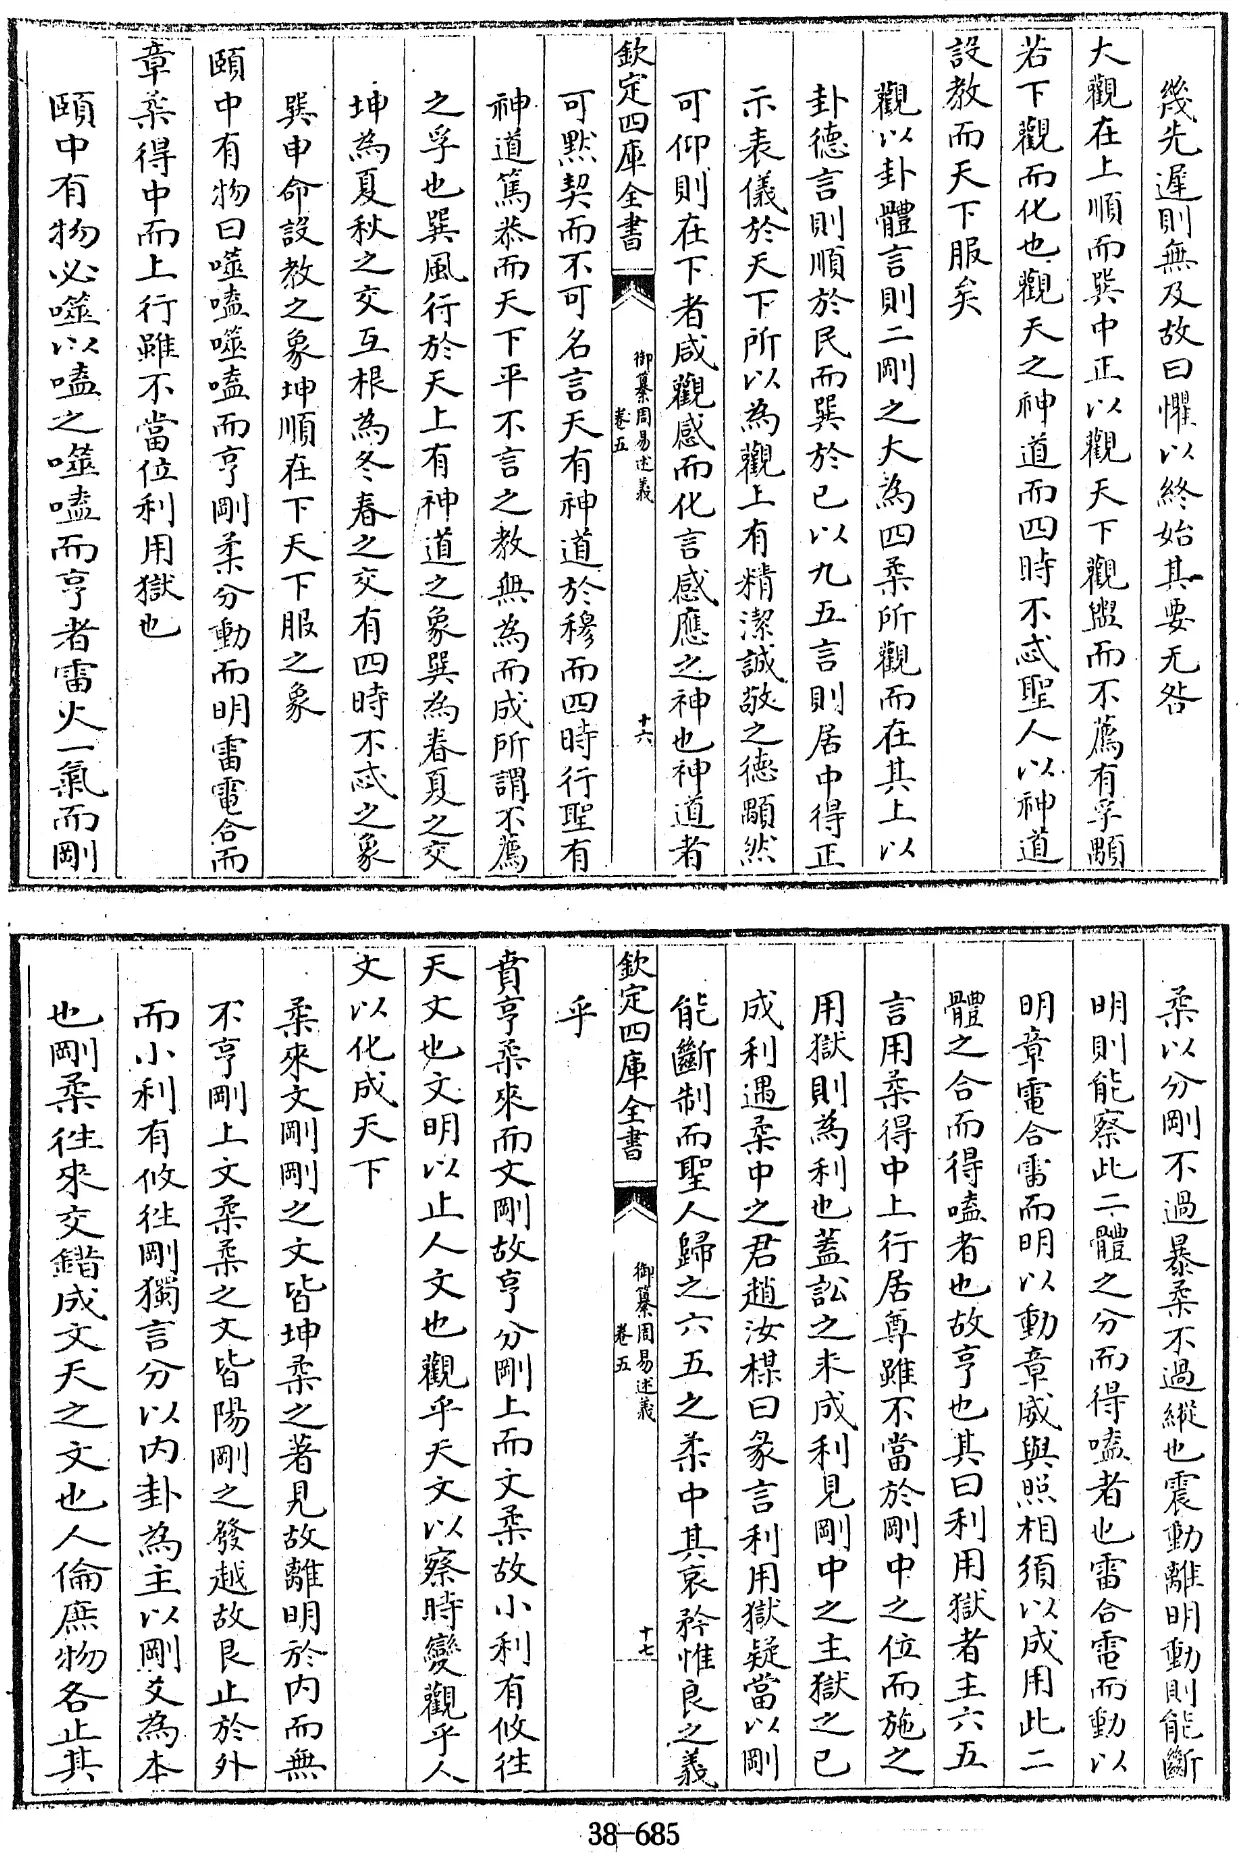 幾先遲則無及故曰懼以終始其要无咎
大觀在上順而巽中正以觀天下觀盥而不薦有孚顒
若下觀而化也觀天之神道而四時不忒聖人以神道
設教而天下服矣
觀以卦體言則二剛之大為四柔所觀而在其上以
卦德言則順於民而巽於已以九五言則居中得正
示表儀於天下所以為觀上有精潔誠敬之德顒然
可仰則在下者咸觀感而化言感應之神也神道者
欽定四庫全書
御纂周易述義
卷五
十六
可默契而不可名言天有神道於穆而四時行聖有
神道篤恭而天下平不言之教無為而成所謂不薦
之孚也巽風行於天上有神道之象巽為春夏之交
坤為夏秋之交互根為冬春之交有四時不忒之象
巽申命設教之象坤順在下天下服之象
頤中有物曰噬嗑噬嗑而亨剛柔分動而明雷電合而
章柔得中而上行雖不當位利用獄也
頤中有物必噬以嗑之噬嗑而亨者雷火一氣而剛
柔以分剛不過暴柔不過縱也震動離明動則能斷
明則能察此二體之分而得嗑者也雷合電而動以
明章電合雷而明以動章威與照相須以成用此二
體之合而得嗑者也故亨也其曰利用獄者主六五
言用柔得中上行居尊雖不當於剛中之位而施之
用獄則為利也蓋訟之未成利見剛中之主獄之已
成利遇柔中之君趙汝楳曰彖言利用獄疑當以剛
能斷制而聖人歸之六五之柔中其哀矜惟良之義
欽定四庫全書
御纂周易述義
卷五
十七
乎
賁亨柔來而文剛故亨分剛上而文柔故小利有攸往
天文也文明以止人文也觀乎天文以察時變觀乎人
文以化成天下
柔來文剛剛之文皆坤柔之著見故離明於內而無
不亨剛上文柔柔之文皆陽剛之發越故艮止於外
而小利有攸往剛獨言分以內卦為主以剛爻為本
也剛柔往來交錯成文天之文也人倫庶物各止其
38-685